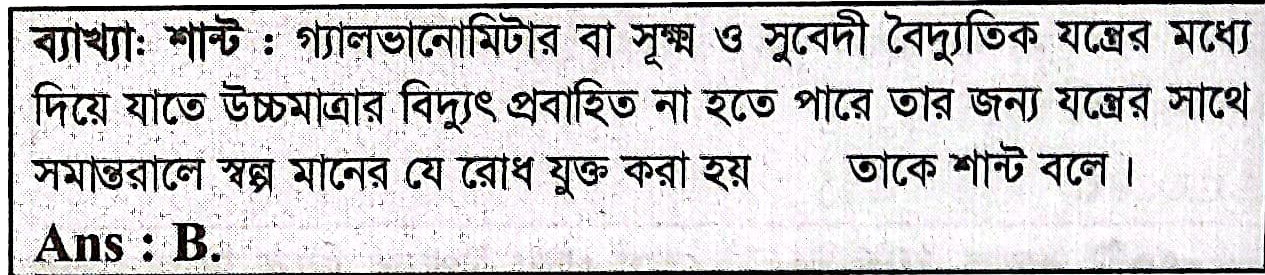 ব্যাখ্যা: শান্ট : গ্যালভানোমিটার বা সূক্ষ্ম ও সুবেদী বৈদ্যুতিক যন্ত্রের মধ্যে
দিয়ে যাতে উচ্চমাত্রার বিদ্যুৎ প্রবাহিত না হতে পারে তার জন্য যন্ত্রের সাথে
সমান্তরালে স্বল্প মানের যে রোধ যুক্ত করা হয় তাকে শান্ট বলে।
Ans : B.